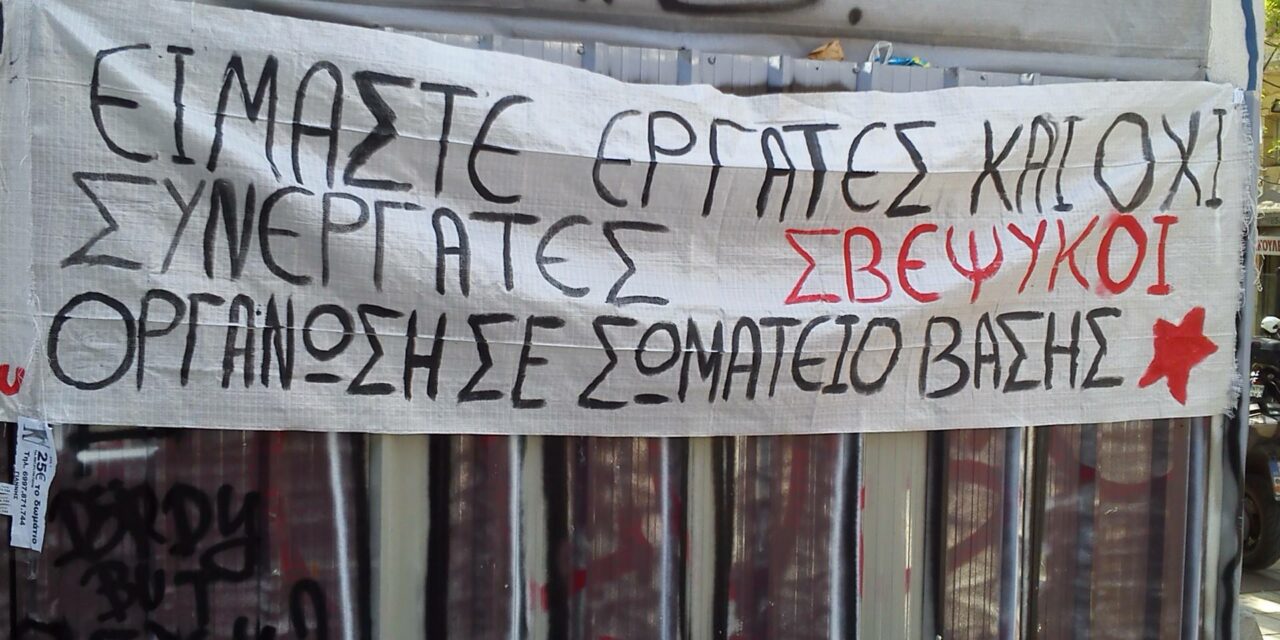 ΕΙΜΑΣΤΕ ΕΡΓΑΤΕΣ ΚΑΙ ΟΧΙ
ΣΥΝΕΡΓΑΤΕΣ ΣΒΕΨΥΚΟΙ
ΟΡΓΑΝΩΣΗ ΣΕ ΣΩΜΑΤΕΙΟ ΒΑΣΗΣ
25€ το δωμάτιο
Τηλ. 6997.871.744
ΓΙΑΝΝΗΣ
BUT